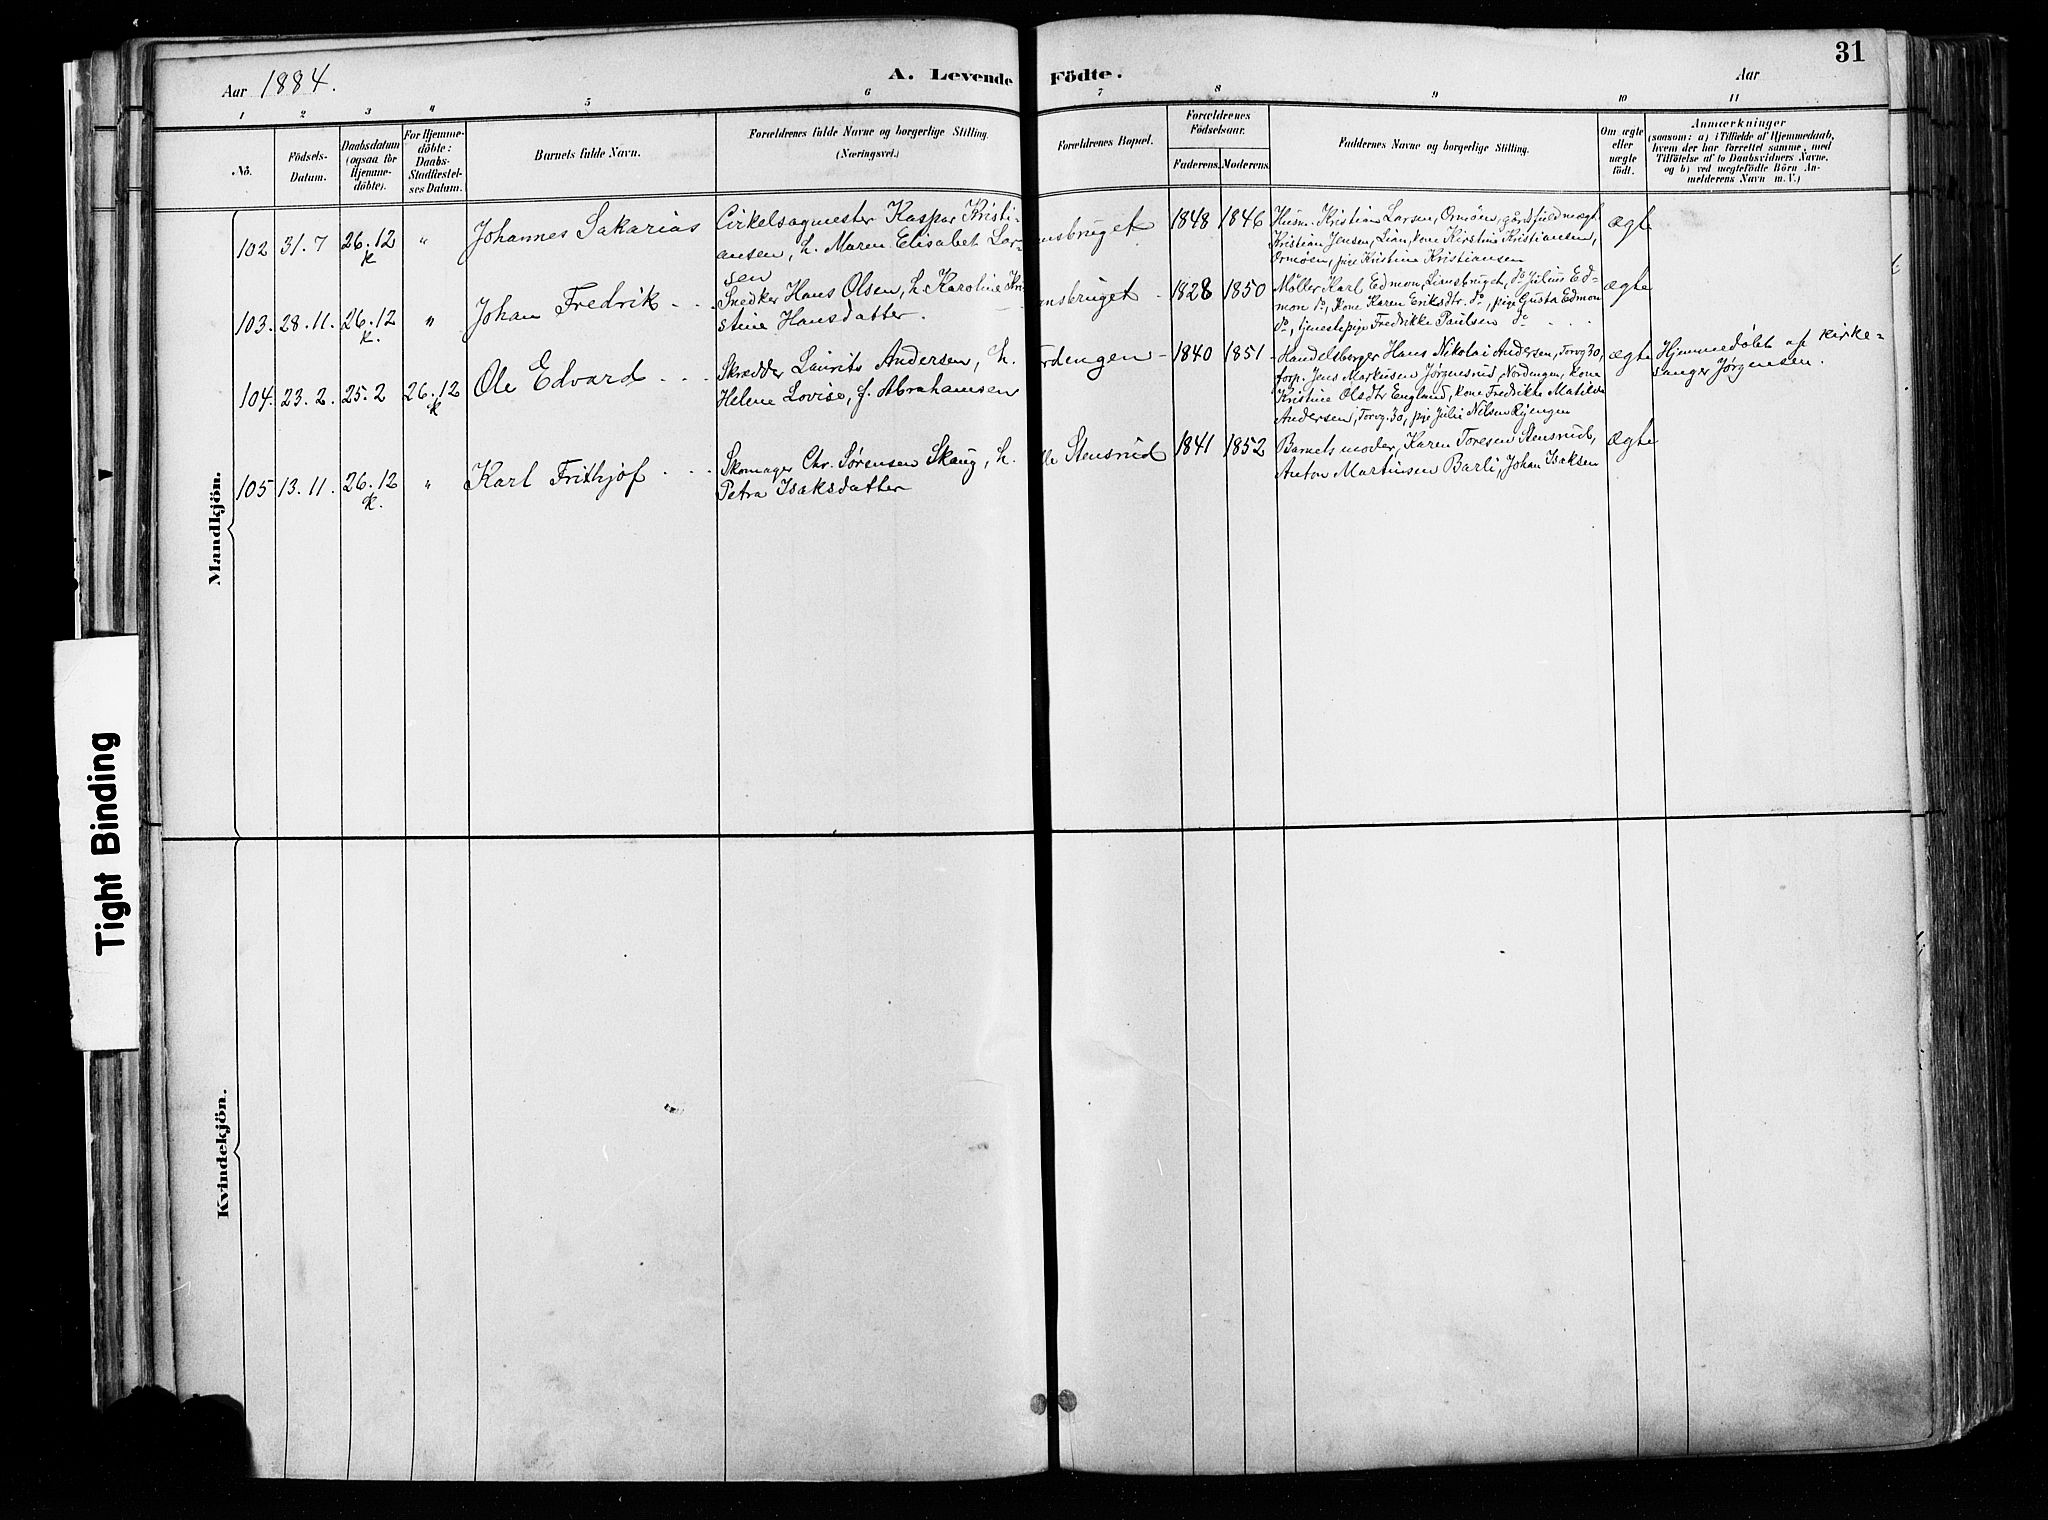 31
Aar 1884.
A. Levende Födte.
Aar
1 2 3 4 5 6 7 8 9 10 11
No.
Födsels-
Datum.
Daabsdatum
(ogsaa for
Hjemme-
döbte).
For Hjemme-
döbte:
Daabs-
Stadfæstel-
ses Datum.
Barnets fulde Navn.
Forældrenes fulde Navne og borgerlige Stilling.
(Næringsvei.)
Forældrenes Bopæl.
Forældrenes
Födselsaar.
Faderens. Moderens.
Faddernes Navne og borgerlige Stilling.
Om ægte
eller
uægte
födt.
Anmærkninger
(saasom: a) i Tilfælde af Hjemmedaab,
hvem der har forrettet samme, med
Tilföielse af to Daabsvidners Navne,
og b) ved uægtefödte Börn An-
melderens Navn m. V.)
Mandkjön.
102 31.7 26.12 k " Johannes Sakarias
Cirkelsagmester Kaspar Kristi-
ansen, h. Maren Elisabet Lar-
sen
nsbruget 1848 1846
Husm. Kristian Larsen, Ormøen, gårdsfuldmægt.
Kristian Jensen, Lian, kone Kirstine Kristiansen,
Ormøen, pige Kristine Kristiansen
ægte
103. 28.11. 26.12 k. " Johan Fredrik
Snedker Hans Olsen, h. Karoline Kri
stine Hansdatter.
nsbruget 1828 1850
Møller Karl Edmon, Liansbruget, do Julius Ed-
mon do, kone Karen Eriksdtr. do, pige Gusta Edmon
do, tjenestepige Fredrikke Paulsen do
ægte
104. 23.2. 25.2 26.12 k Ole Edvard
Skrædder Laurits Andersen, h.
Helene Lovise, f. Abrahamsen
rdengen 1840 1851
Handelsberger Hans Nikolai Andersen, Torvg 30,
forp. Jens Markusen Jørgensrud, Nordengen, kone
Kristine Olsdtr England, kone Fredrikke Matilde
Andersen, Torvg. 30, pige Julie Nilsen Ryengen
ægte
Hjemmedøbt af kirke-
sanger Jørgensen.
105 13.11. 26.12 k. " Karl Frithjof
Skomager Chr. Sørensen Skaug, h.
Petra Isaksdatter
lle Stensrud 1841 1852
Barnets moder, Karen Toresen Stensrud,
Anton Martinsen Barli, Johan Isaksen
ægte
Kvindekjön.
Tight Binding